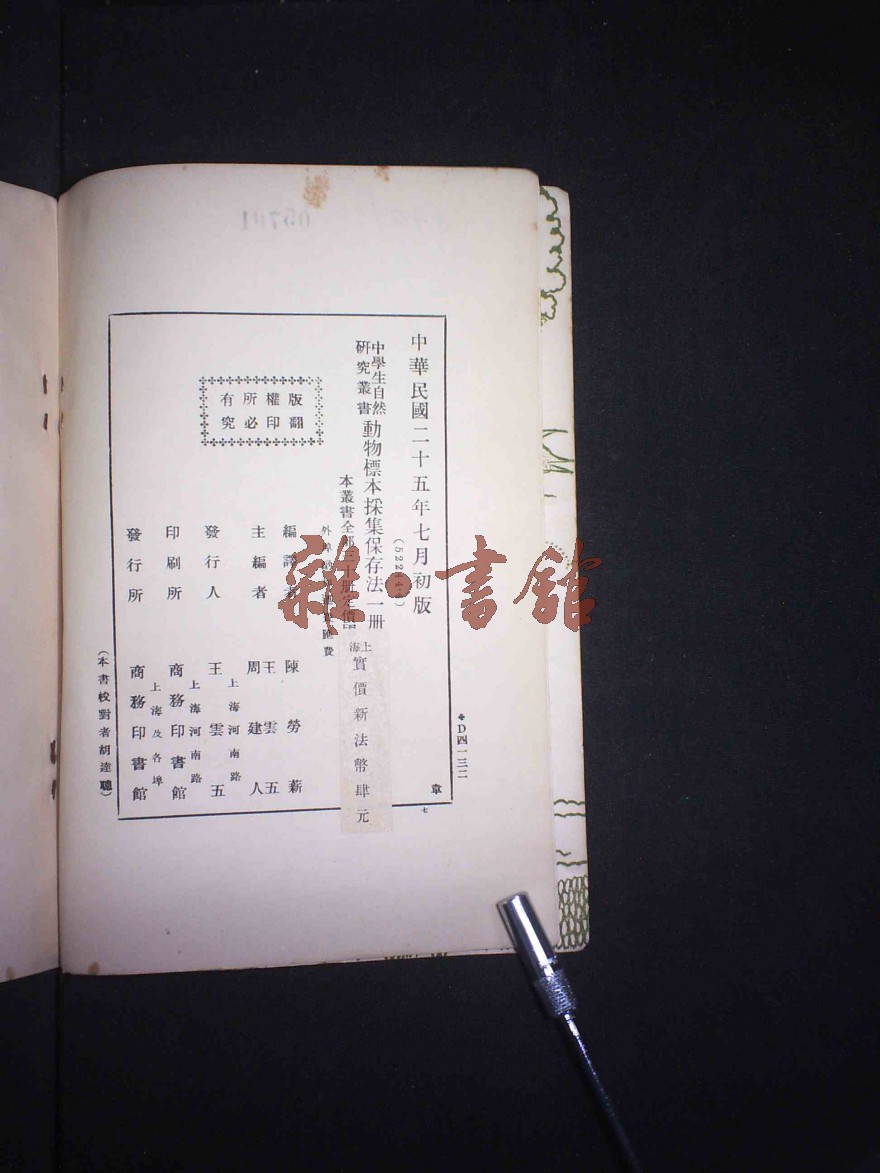 中華民國二十五年七月初版
中學生自然
研究叢書
動物標本採集保存法一册
本叢書全部三十册定價
上海
實價新法幣肆元
外埠
匯費
版權所有
翻印必究
編譯者 陳勞薪
主編者 王雲五
周建人
發行人 王雲五
上海河南路
印刷所 商務印書館
上海河南路
發行所 商務印書館
上海及各埠
(本書校對者胡達聰)
D四一三二
章
七
雜·書館